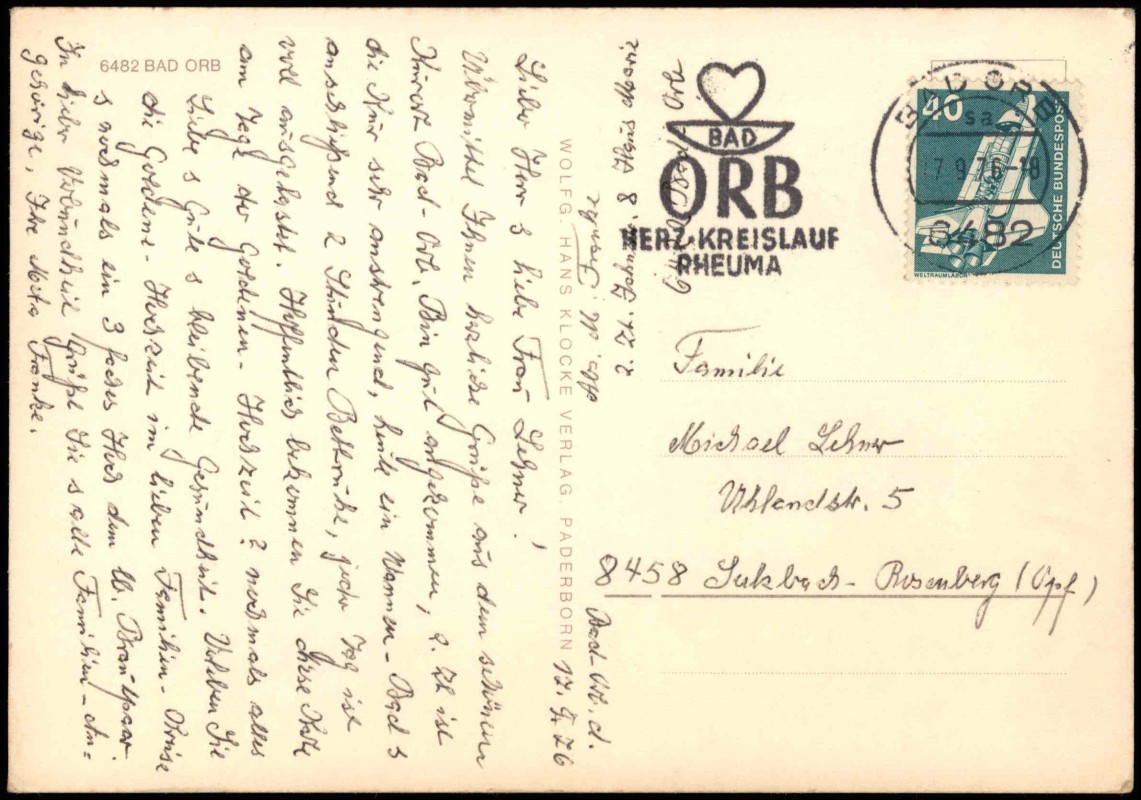 6482 BAD ORB
Bad-Orb. d.
17. 9. 76
Liebe Herr & liebe Frau Lehner!
Übermittel Ihnen herzliche Grüße aus dem schönen
Kurort Bad-Orb. Bin gut angekommen, z. Zt. ist
die Kur sehr anstrengend, heute ein Wannen-Bad &
anschließend 2 Stunden Bettruhe, jeder Tag ist
voll ausgelastet. Hoffentlich bekommen Sie diese Karte
am Tage der Goldenen-Hochzeit? nochmals alles
Liebe & Gute & bleibende Gesundheit. Verleben Sie
die Goldene-Hochzeit im lieben Familien-Kreise
& nochmals ein 3 faches Hoch dem lb. Brautpaar.
In lieber Verbundheit grüßt Sie & alle Familien-An=
gehörige, Ihre Meta Franke.
WOLFG. HANS KLOCKE VERLAG, PADERBORN
Abs. M. Franke
z. Zt.
Bad Orb
BAD
ORB
HERZ·KREISLAUF
RHEUMA
BAD ORB
sa
17.9.76-18
6482
40
DEUTSCHE BUNDESPOST
WELTRAUMLABOR
Familie
Michael Lehner
Uhlandstr. 5
8458 Sulzbach-Rosenberg (Opf)